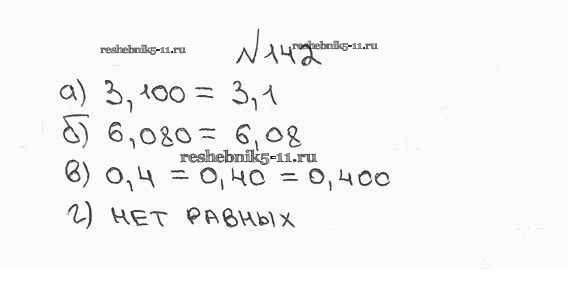 reshebnik5-11.ru
reshebnik5-11.ru
№142
а) 3,100 = 3,1
б) 6,080 = 6,08
reshebnik5-11.ru
в) 0,4 = 0,40 = 0,400
г) НЕТ РАВНЫХ